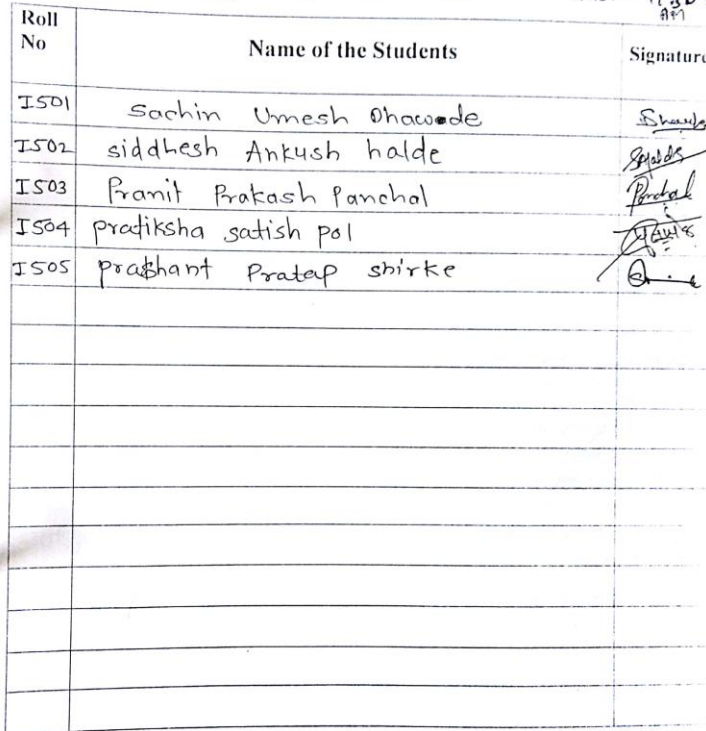 AM
Roll No Name of the Students Signature
I501 Sachin Umesh Dhawode
I502 siddhesh Ankush halde
I503 Pranit Prakash Panchal Panchal
I504 pratiksha satish pol
I505 prashant Pratap shirke